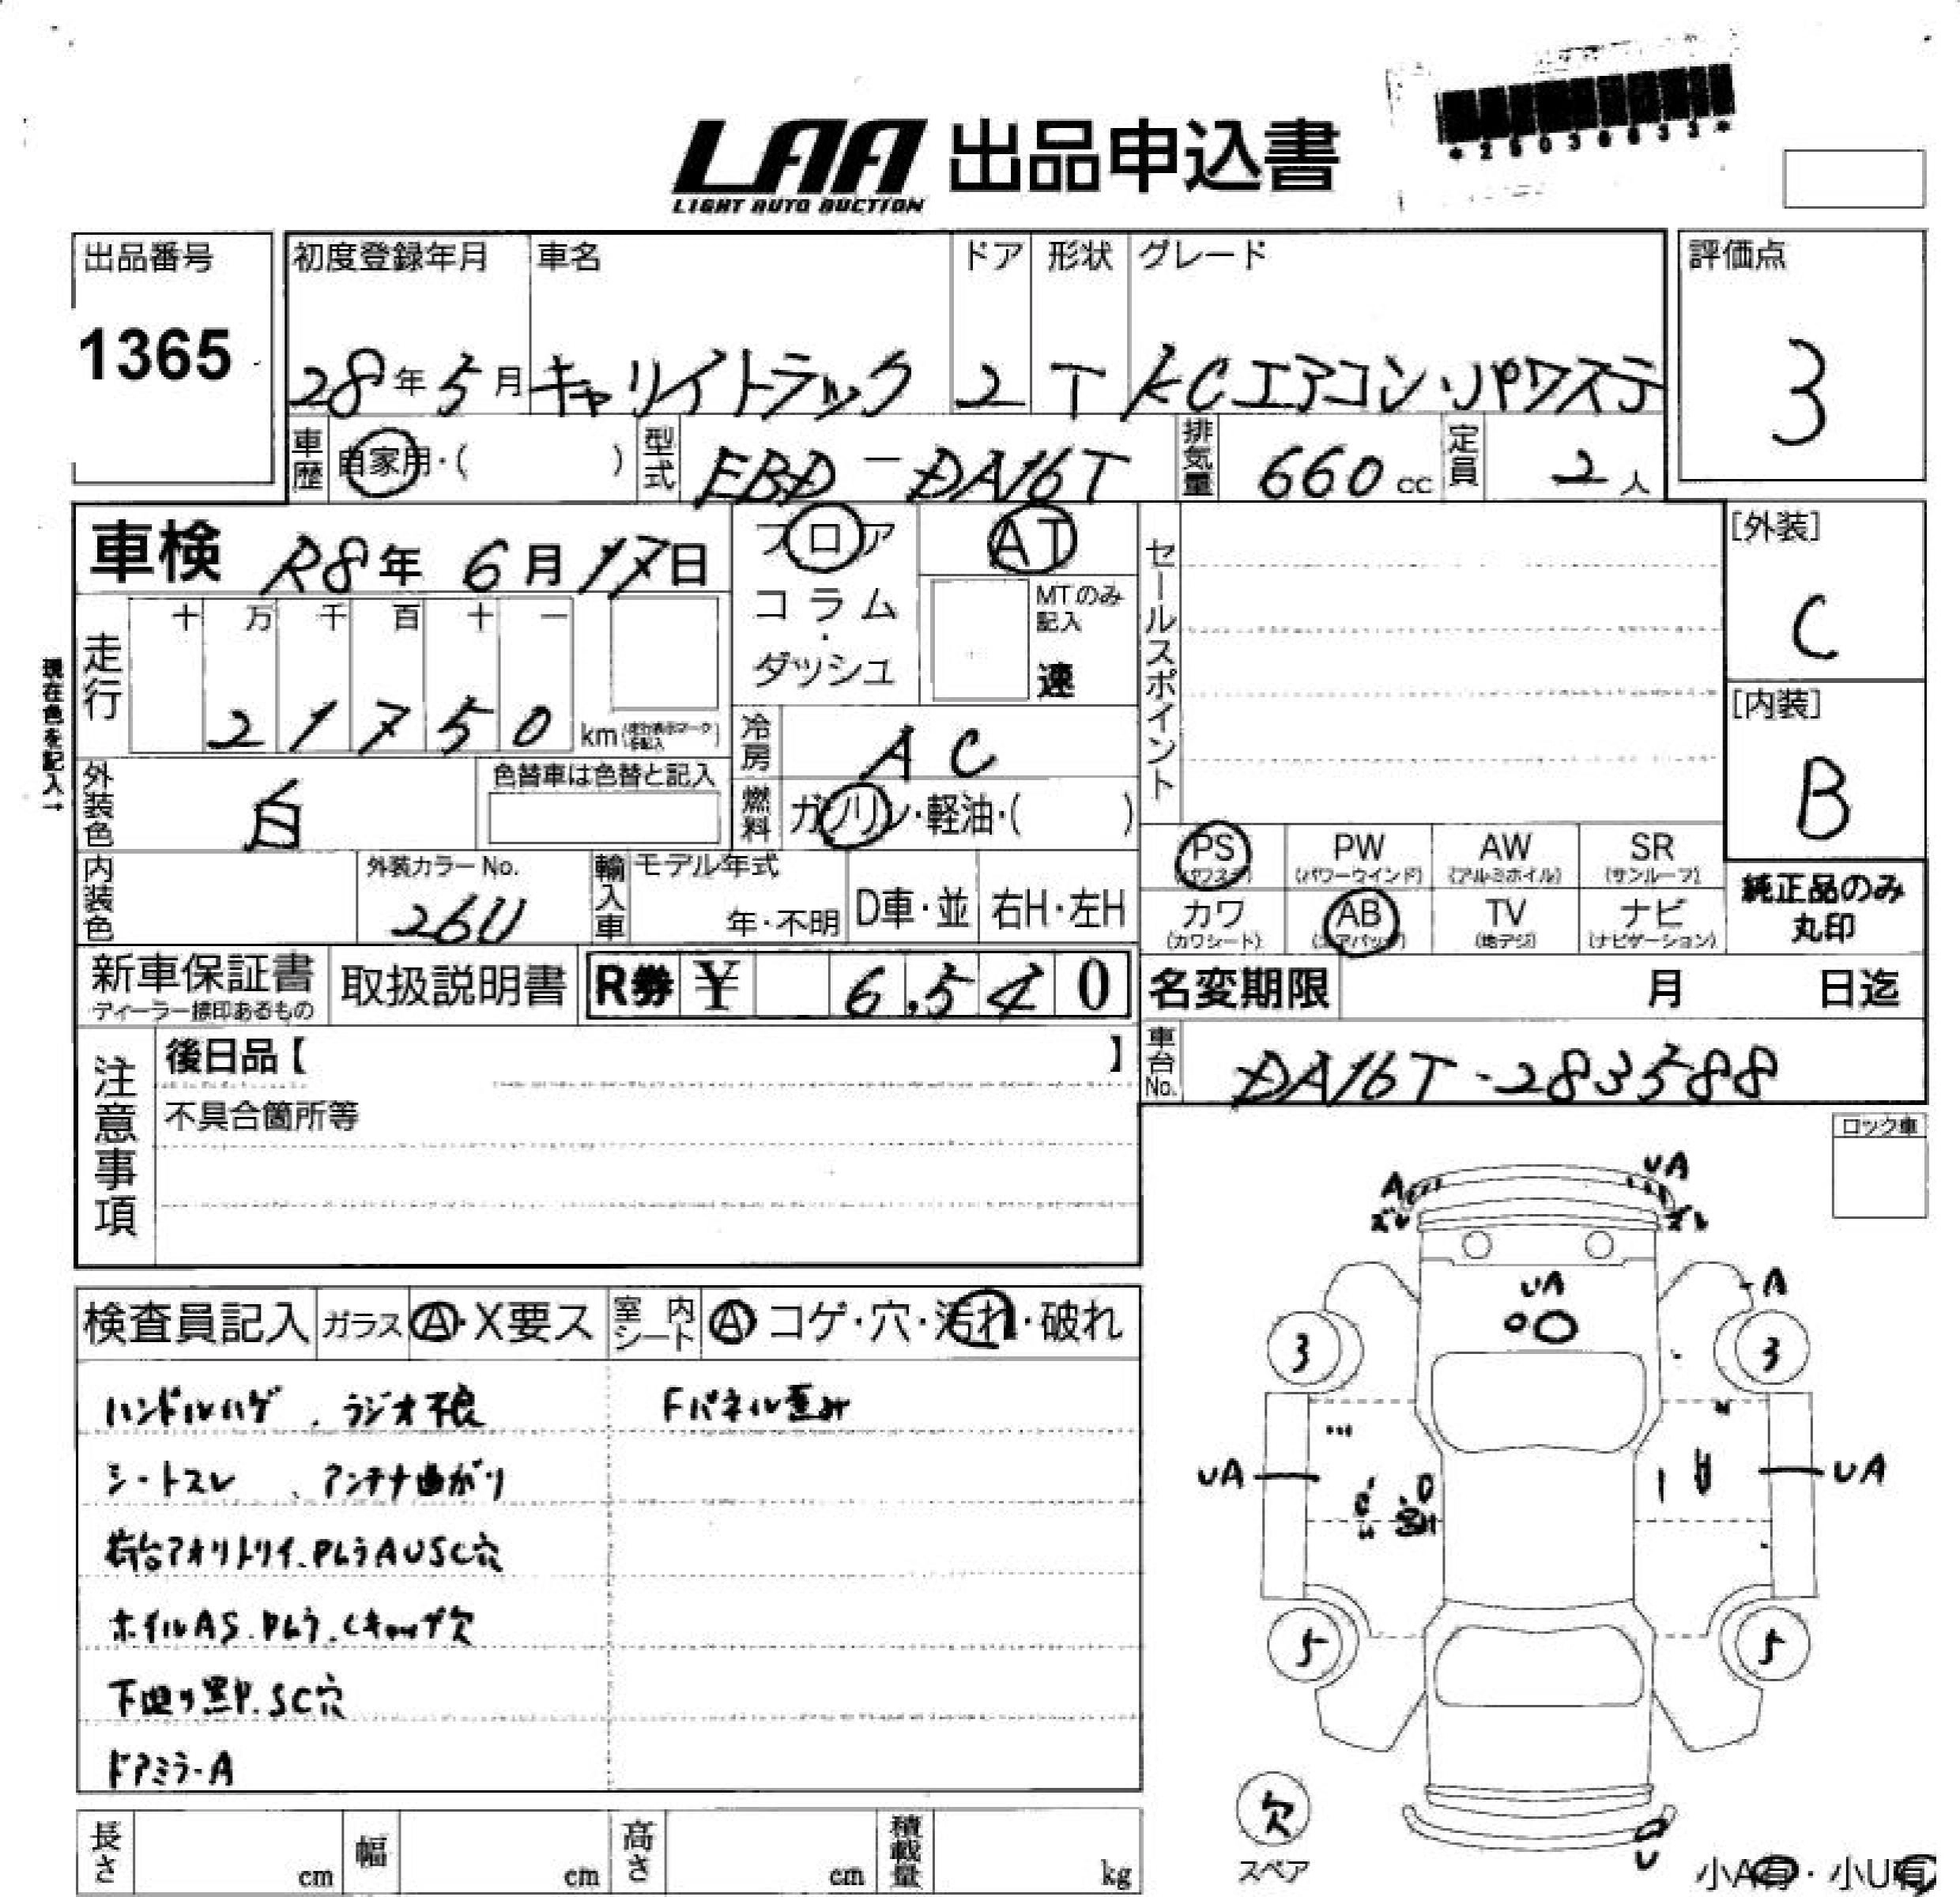 LAA 出品申込書
LIGHT AUTO AUCTION
出品番号
1365
初度登録年月
28年5月
車名
キャリイトラック
ドア
2
形状
T
グレード
KCエアコン・パワステ
評価点
3
車歴
自家用・( )
型式
EBD-DA16T
排気量
660cc
定員
2人
車検
R8年 6月 17日
フロア
コラム
・
ダッシュ
AT
MTのみ
記入
速
セールスポイント
[外装]
C
[内装]
B
現在色を記入→
走行
十 万 千 百 十 一
2 1 7 5 0 km
冷房
AC
外装色
白
色替車は色替と記入
燃料
ガソリン・軽油・( )
内装色
外装カラーNo.
26U
輸入車
モデル年式
年・不明
D車・並
右H・左H
PS
(パワステ)
PW
(パワーウインド)
AW
(アルミホイル)
SR
(サンルーフ)
カワ
(カワシート)
AB
(エアバッグ)
TV
(地デジ)
ナビ
(ナビゲーション)
純正品のみ
丸印
新車保証書
ディーラー捺印あるもの
取扱説明書
R券 ¥ 6,540
名変期限
月 日迄
車台No.
DA16T-283588
注意事項
後日品【 】
不具合箇所等
ロック車
検査員記入
ガラス A・X要ス
室内シート A コゲ・穴・汚れ・破れ
ハンドルハゲ、ラジオ不良
Fパネル歪み
シートスレ、アンテナ曲がり
荷台アオリトリイ、PムラAUSC穴
ホイルAS.Pムラ.Cキャップ欠
下廻り黒P.SC穴
ドアミラーA
A
ズレ
UA
ズレ
UA
A
3
3
UA
UA
5
5
欠
スペア
U
小A有・小U有
長さ cm
幅 cm
高さ cm
積載量 kg